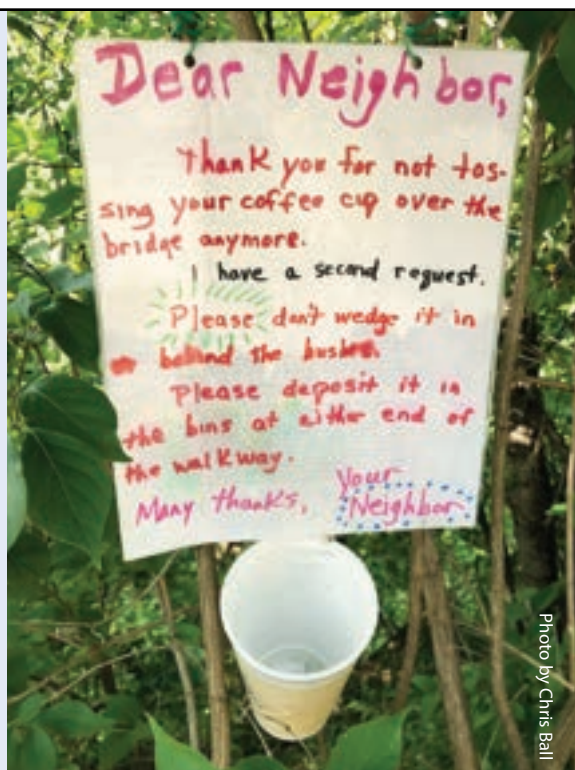 Dear Neighbor,
Thank you for not tos-
sing your coffee cup over the
bridge anymore.
I have a second request.
Please don't wedge it in
behind the bushes.
Please deposit it in
the bins at either end of
the walkway.
Many thanks, Your
Neighbor
Photo by Chris Ball